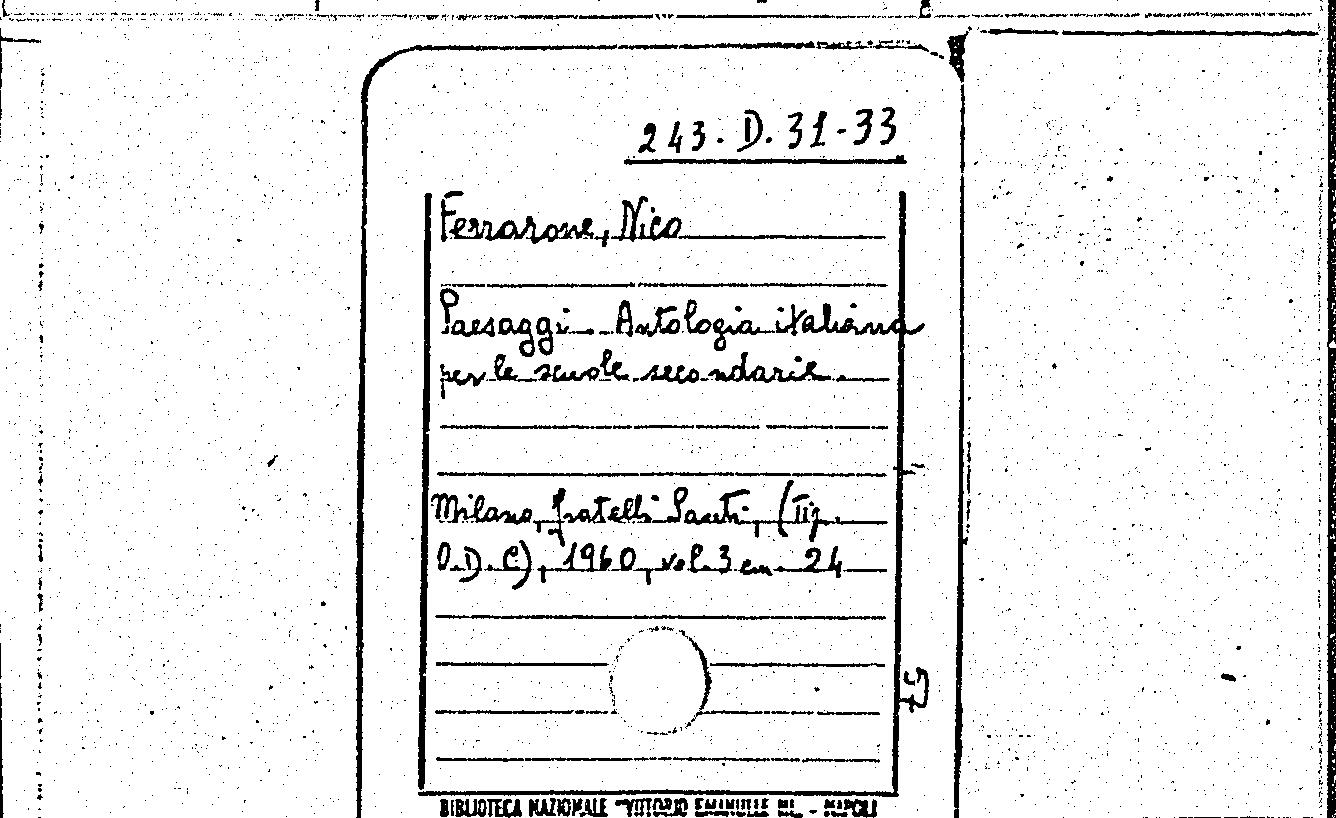 243. D. 31-33
Ferrarone, Nico
Paesaggi. Antologia italiana
per le scuole secondarie.
Milano, fratelli (Tip.
O.D.C), 1960, vol. 3 cm. 24
57
BIBLIOTECA NAZIONALE "VITTORIO EMANUELE III. - NAPOLI